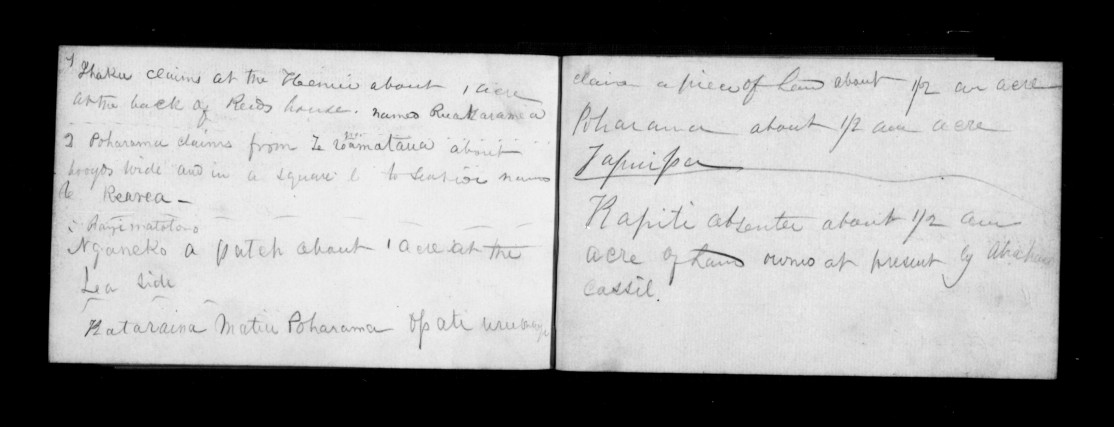 1 Ihaku claims at the Henui about 1 acre
at the back of Reeds house. names Ruakaramea
2 Poharama claims from Te mamatana about
wide and in a square to names
Rearea —
Ngameko a patch about 1 acre at the
Lea side
Kataraina Matiu Poharama
claim a piece of Land about 1/2 an acre
Poharama about 1/2 an acre
Tapuipa
Kapiti absentee about 1/2 an
acre of Land owned at present by
Cassil.